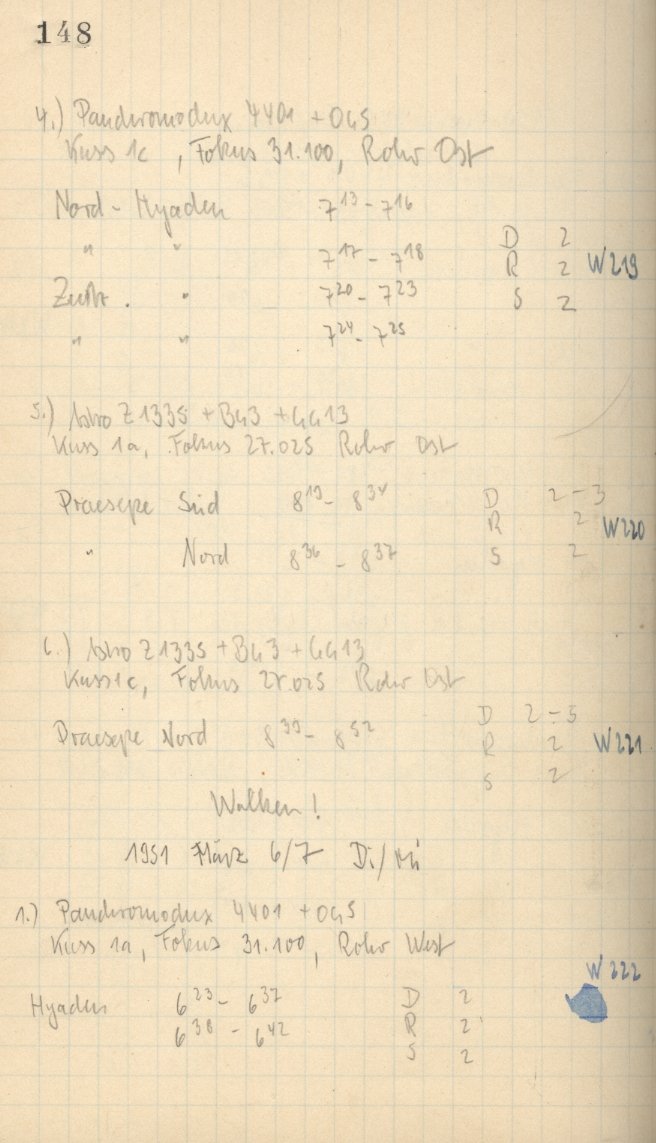 148
4.) Panchromodux 4401 + OG5
Kass 1c, Fokus 31.100, Rohr Ost
Nord-Hyaden 7¹³ - 7¹⁶
" " 7¹⁷ - 7¹⁸ D 2
R 2 W219
" 7²⁰ - 7²³ S 2
" " 7²⁴ - 7²⁵
5.) Astro Z 1335 + BG3 + GG13
Kass 1a, Fokus 27.025 Rohr Ost
Praesepe Süd 8¹⁹ - 8³⁴ D 2-3
R 2 W220
" Nord 8³⁶ - 8³⁷ S 2
6.) Astro Z 1335 + BG3 + GG13
Kass 1c, Fokus 27.025 Rohr Ost
Praesepe Nord 8³⁹ - 8⁵² D 2-3
R 2 W221
S 2
Wolken!
1951 März 6/7 Di./Mi
1.) Panchromodux 4401 + OG5
Kass 1a, Fokus 31.100, Rohr West
W222
Hyaden 6²³ - 6³⁷ D 2
6³⁸ - 6⁴² R 2
S 2